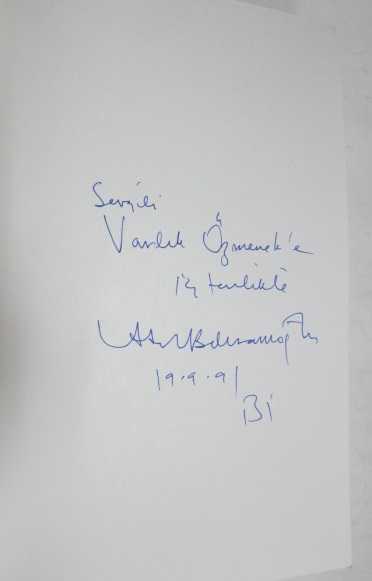 Sevgili
Varlık Özmenek'e
içtenlikle
19.9.91